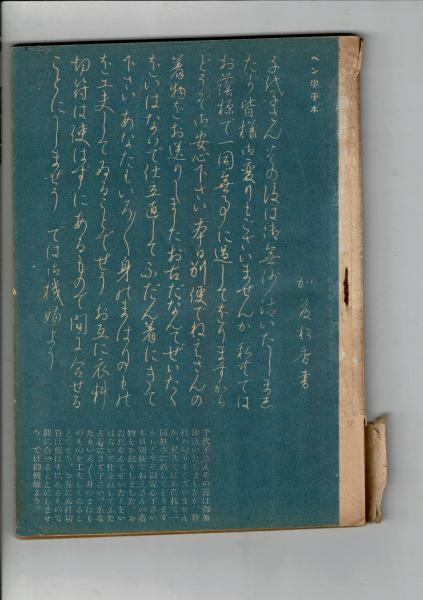 ペン字手本
加藤松香書
千代子さん その後は御無沙汰いたしまし
た 皆様お変りもございませんか 私方では
お蔭様で一同無事に過して居りますから
どうぞ御安心下さい 本日別便でねえさんの
着物をお送りしました お古だなんてぜいたく
をいはないで仕立直してふだん着にきて
下さい あなたもいろ〳〵身のまはりのもの
を工夫してゐることでせう お互に衣料
切符は使はずにあるもので間に合せる
ことにしませう では御機嫌よう
千代子さんその後は御無
沙汰いたしました。皆
様お変りもございません
か。私方ではお蔭様で一
同無事に過して居ります
からどうぞ御安心下さい
本日別便でねえさんの着
物をお送りしました。お
古だなんてぜいたくをい
はないで仕立直してふだ
ん着にきて下さい。あな
たもいろ〳〵身のまはり
のものを工夫してゐるこ
とでせう。お互に衣料切
符は使はずにあるもので
間に合せることにしませ
う。では御機嫌よう。